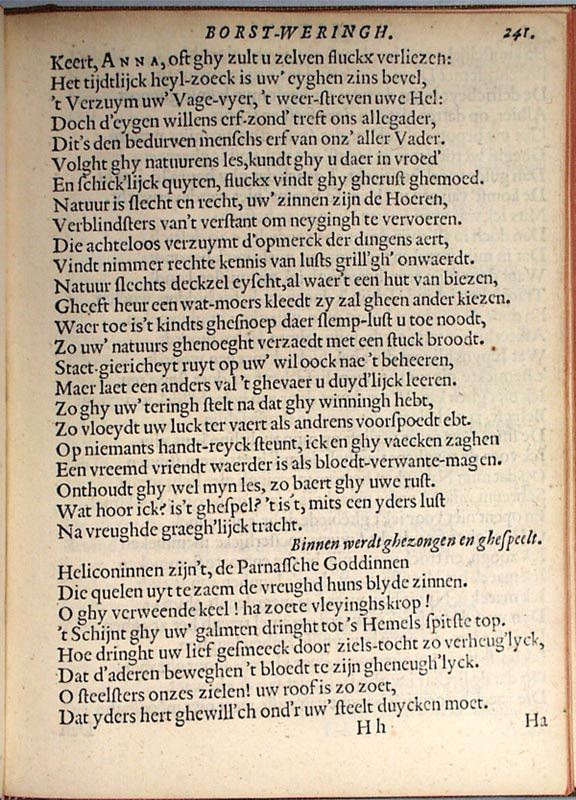 BORST-WERINGH. 241.
Keert, ANNA, oft ghy zult u zelven fluckx verliezen:
Het tijdtlijck heyl-zoeck is uw' eyghen zins bevel,
't Verzuym uw' Vage-vyer, 't weer-streven uwe Hel:
Doch d'eygen willens erf-zond' treft ons allegader,
Dit's den bedurven menschs erf van onz' aller Vader.
Volght ghy natuurens les, kundt ghy u daer in vroed'
En schick'lijck quyten, fluckx vindt ghy gherust ghemoed.
Natuur is slecht en recht, uw' zinnen zijn de Hoeren,
Verblindsters van't verstant om neygingh te vervoeren.
Die achteloos verzuymt d'opmerck der dingens aert,
Vindt nimmer rechte kennis van lusts grill'gh' onwaerdt.
Natuur slechts deckzel eyscht, al waer't een hut van biezen,
Gheeft heur een wat-moers kleedt zy zal gheen ander kiezen.
Waer toe is't kindts ghesnoep daer slemp-lust u toe noodt,
Zo uw' natuurs ghenoeght verzaedt met een stuck broodt.
Staet-giericheyt ruyt op uw' wil oock nae 't beheeren,
Maer laet een anders val 't ghevaer u duyd'lijck leeren.
Zo ghy uw' teringh stelt na dat ghy winningh hebt,
Zo vloeydt uw luck ter vaert als andrens voorspoedt ebt.
Op niemants handt-reyck steunt, ick en ghy vaecken zaghen
Een vreemd vriendt waerder is als bloedt-verwante-magen.
Onthoudt ghy wel myn les, zo baert ghy uwe rust.
Wat hoor ick? is't ghespel? 't is't, mits een yders lust
Na vreughde graegh'lijck tracht.
Binnen werdt ghezongen en ghespeelt.
Heliconinnen zijn't, de Parnassche Goddinnen
Die quelen uyt te zaem de vreughd huns blyde zinnen.
O ghy verweende keel! ha zoete vleyinghs krop!
't Schijnt ghy uw' galmten dringht tot 's Hemels spitste top.
Hoe dringht uw lief gesmeeck door ziels-tocht zo verheug'lyck,
Dat d'aderen beweghen 't bloedt te zijn gheneugh'lyck.
O steelsters onzes zielen! uw roof is zo zoet,
Dat yders hert ghewill'ch ond'r uw' steelt duycken moet.
Hh Ha